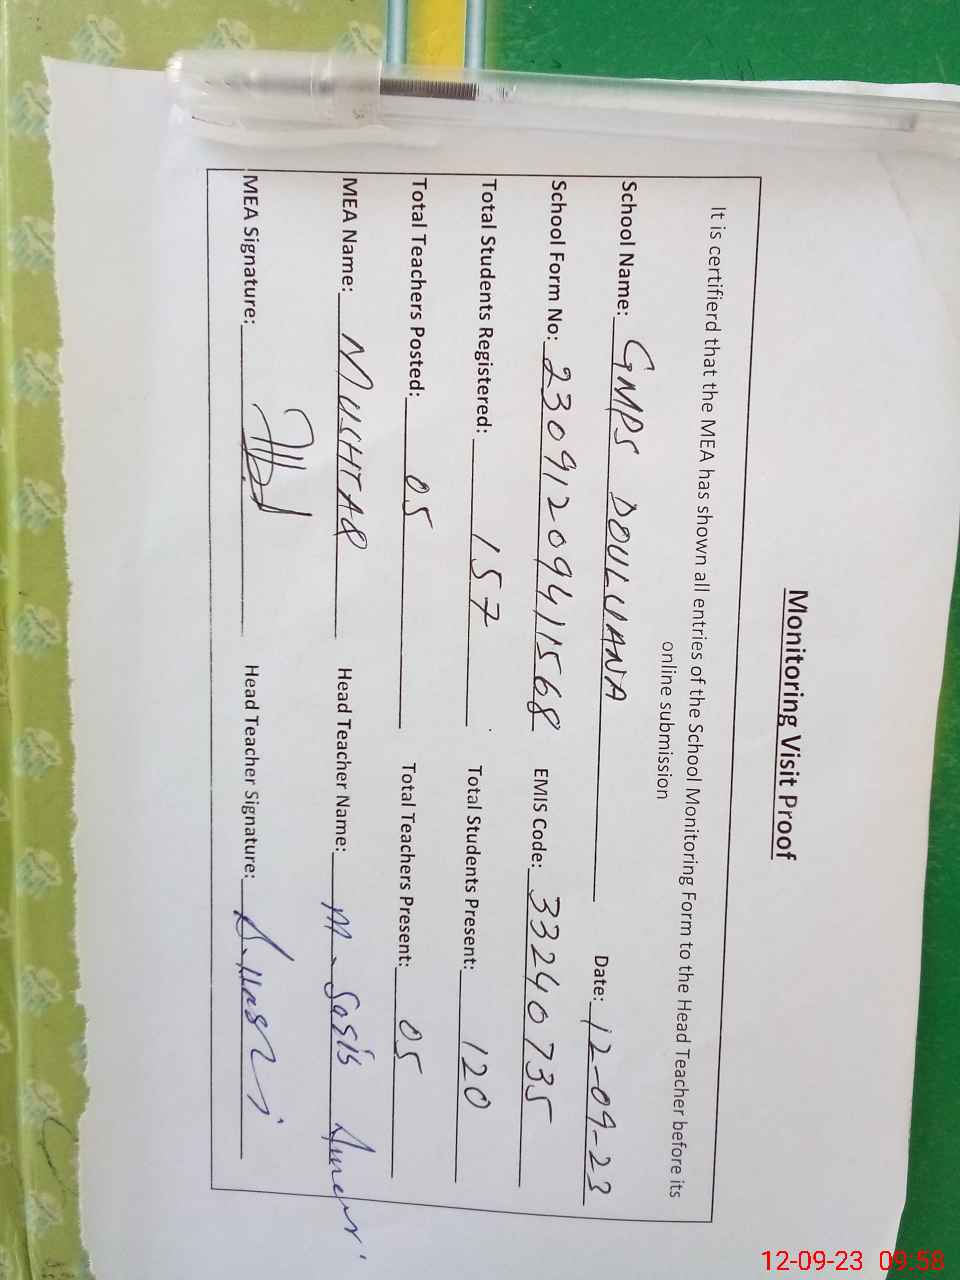 Monitoring Visit Proof
It is certifierd that the MEA has shown all entries of the School Monitoring Form to the Head Teacher before its
online submission
School Name: GMPS DOULUANA Date: 12-09-23
School Form No: 230912094111568 EMIS Code: 33240735
Total Students Registered: 157 Total Students Present: 120
Total Teachers Posted: 05 Total Teachers Present: 05
MEA Name: MUSHTAQ Head Teacher Name: M-
MEA Signature: Head Teacher Signature:
12-09-23 09:58